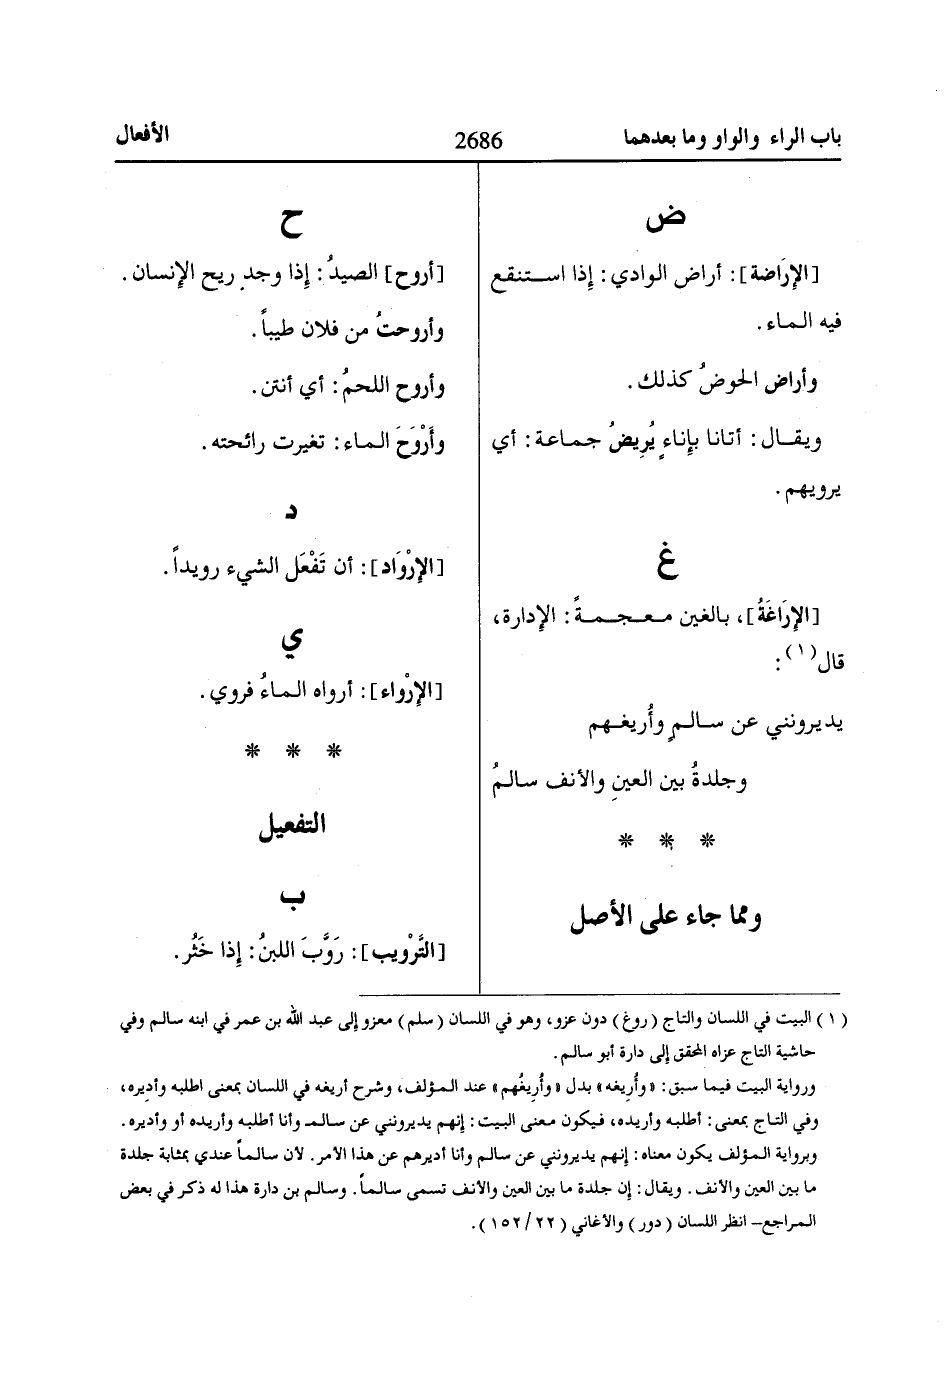 باب الراء والواو وما بعدهما 2686 الأفعال
ض
[الإرَاضة]: أراض الوادي: إذا استنقع
فيه الماء.
وأراض الحوضُ كذلك.
ويقال: أتانا بإناءٍ يُرِيضُ جماعة: أي
يرويهم.
غ
[الإرَاغَةُ]، بالغين معجمةً: الإدارة،
قال(١):
يديرونني عن سالمٍ وأُريغهم
وجلدةُ بين العينِ والأنف سالمُ
* * *
ومما جاء على الأصل
ح
[أروح] الصيدُ: إذا وجد ريح الإنسان.
وأروحتُ من فلان طيباً.
وأروح اللحمُ: أي أنتن.
وأَرْوَحَ الماء: تغيرت رائحته.
د
[الإرْوَاد]: أن تَفْعَل الشيء رويداً.
ي
[الإرْواء]: أرواه الماءُ فروي.
* * *
التفعيل
ب
[التَّرْويب]: رَوَّبَ اللبنُ: إذا خَثُر.
(١) البيت في اللسان والتاج (روغ) دون عزو، وهو في اللسان (سلم) معزو إلى عبد الله بن عمر في ابنه سالم وفي
حاشية التاج عزاه المحقق إلى دارة أبو سالم.
ورواية البيت فيما سبق: «وأُريغه» بدل «وأُريغُهم» عند المؤلف، وشرح أريغه في اللسان بمعنى اطلبه وأديره،
وفي التاج بمعنى: أطلبه وأريده، فيكون معنى البيت: إنهم يديرونني عن سالم وأنا أطلبه وأريده أو وأديره.
وبرواية المؤلف يكون معناه: إنهم يديرونني عن سالم وأنا أديرهم عن هذا الأمر. لأن سالماً عندي بمثابة جلدة
ما بين العين والأنف. ويقال: إن جلدة ما بين العين والأنف تسمى سالماً. وسالم بن دارة هذا له ذكر في بعض
المراجع– انظر اللسان (دور) والأغاني (٢٢/١٥٢).